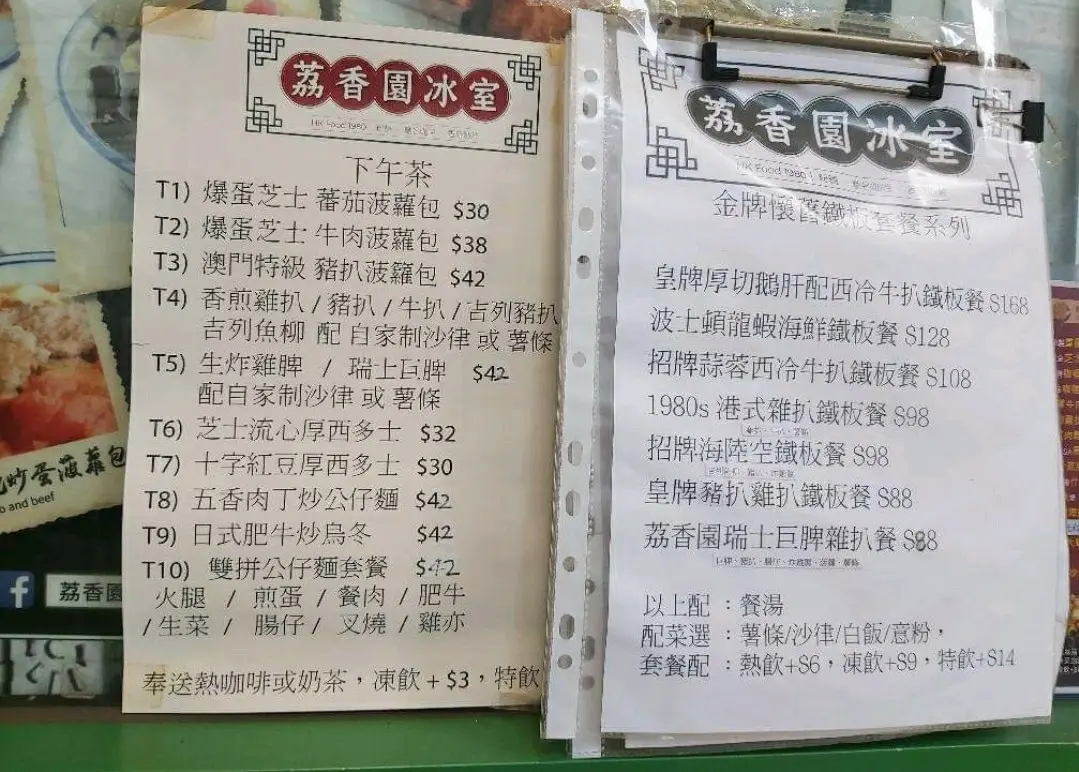 荔香園冰室
HK Food 1980
下午茶
T1) 爆蛋芝士 蕃茄菠蘿包 $30
T2) 爆蛋芝士 牛肉菠蘿包 $38
T3) 澳門特級 豬扒菠籮包 $42
T4) 香煎雞扒 / 豬扒 / 牛扒 / 吉列豬扒
吉列魚柳 配 自家制沙律 或 薯條
T5) 生炸雞脾 / 瑞士巨脾 $42
配自家制沙律 或 薯條
T6) 芝士流心厚西多士 $32
T7) 十字紅豆厚西多士 $30
T8) 五香肉丁炒公仔麵 $42
T9) 日式肥牛炒烏冬 $42
T10) 雙拼公仔麵套餐 $42
火腿 / 煎蛋 / 餐肉 / 肥牛
/ 生菜 / 腸仔 / 叉燒 / 雞亦
奉送熱咖啡或奶茶，凍飲 + $3，特飲
荔香園冰室
HK Food 1980
金牌懷舊鐵板套餐系列
皇牌厚切鵝肝配西冷牛扒鐵板餐 S168
波士頓龍蝦海鮮鐵板餐 S128
招牌蒜蓉西冷牛扒鐵板餐 S108
1980s 港式雜扒鐵板餐 S98
招牌海陸空鐵板餐 S98
皇牌豬扒雞扒鐵板餐 S88
荔香園瑞士巨脾雜扒餐 S88
以上配 ：餐湯
配菜選 ：薯條/沙律/白飯/意粉，
套餐配 ：熱飲+S6，凍飲+S9，特飲+S14
炒蛋菠蘿包
and beef
f 荔香園